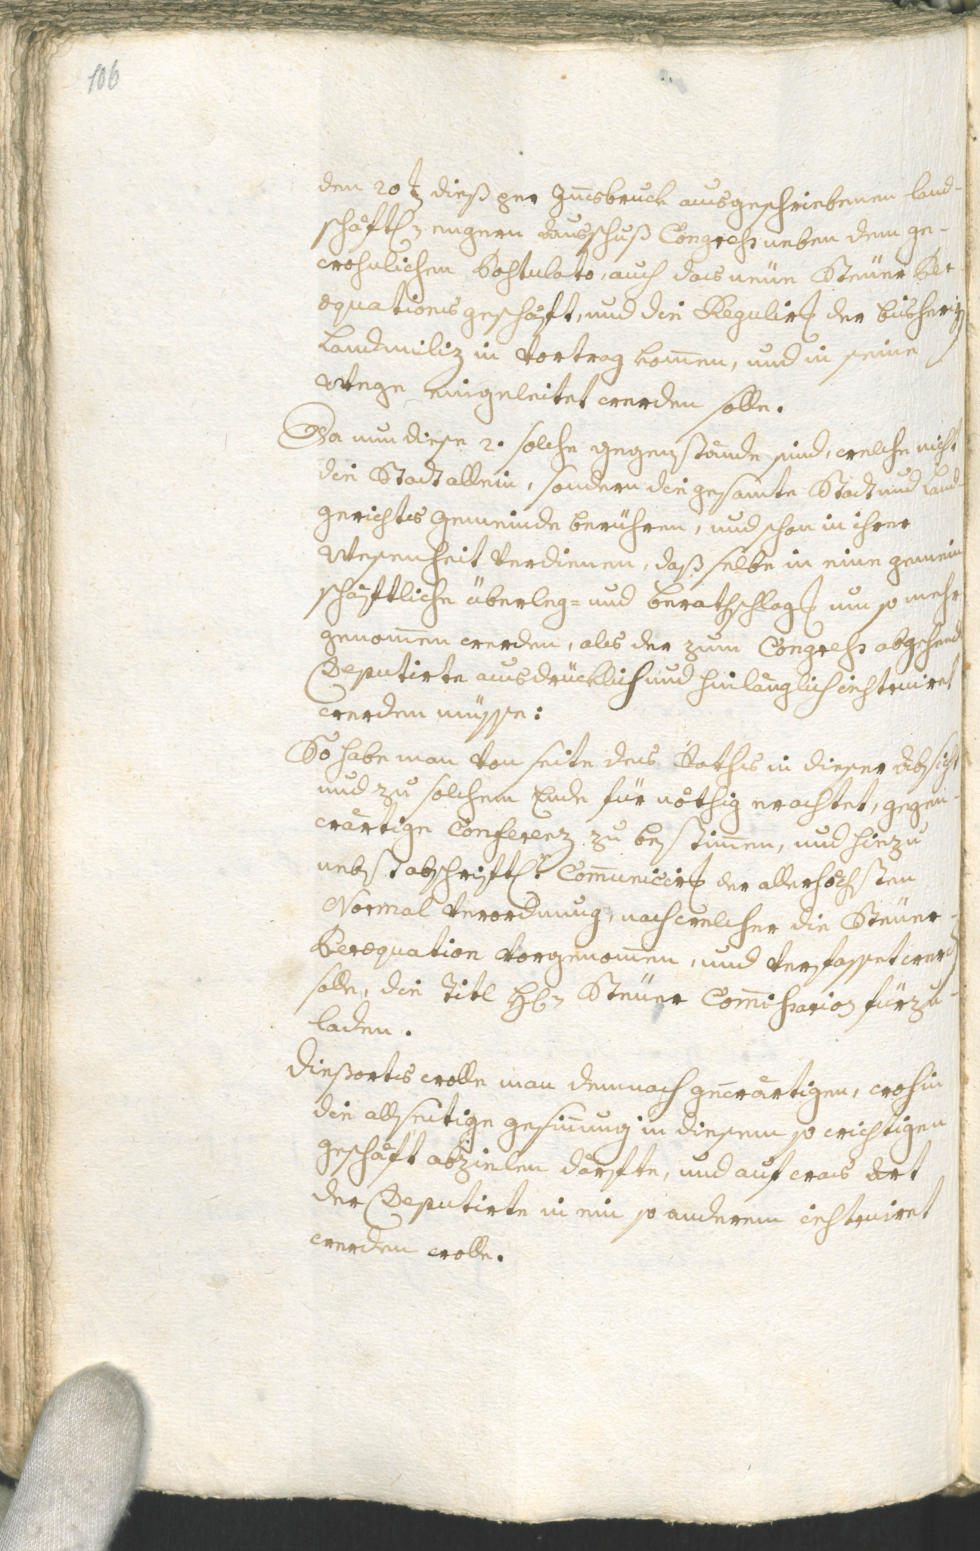 106
den 20t dieß per Innsbruck ausgeschriebenen land-
schäftl: engern Ausschuß Congress neben dem ge-
wohnlichen Postulato, auch das neüe Steüer Per-
æquations geschäft, und die Regulirg der bisherig
Landmiliz in Vortrag kom̅en, und in seine
Weege eingeleitet werden solle.
Da nun diese 2. solche gegenstände sind, welche nicht
die Stadt allein, sondern die gesamte Stadt und Land-
gerichts Gemeinde berühren, und schon in ihrer
Wesenheit verdienen, daß selbe in eine gemein
schäftliche überleg- und berathschlagg um so mehr
genom̅en werden, als der zum Congress abgehend
Deputirte ausdrücklich und hinlänglich instruiret
werden müsse:
So habe man von seite des Raths in dieser Absicht
und zu solchem Ende für nöthig erachtet, gegen-
wärtige Conferenz zu bestim̅en, und hiezu
nebst abschriftl: Com̅unicirg der allerhöchsten
Normal Verordnung, nach welcher die Steüer-
Peræquation vorgenom̅en, und verfasset werd
solle, die Titl H: Steüer Com̅issarios fürzu-
laden.
Dießorts wolle man demnach gewärtigen, wohin
die allseitige gesin̅ung in diesem so wichtigen
geschäft abzielen dårfte, und auf was Art
der Deputirte in ein so anderem instruiret
werden wolle.